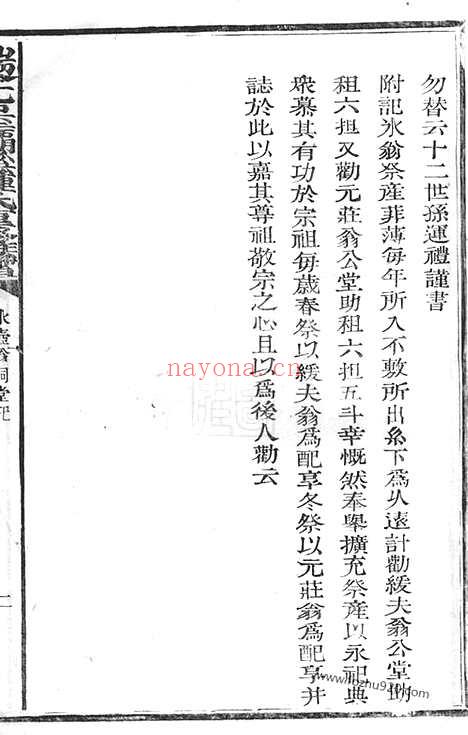 勿替云十二世孫運禮謹書
附記氷翁祭產菲薄每年所入不敷所出糸下爲久遠計勸緩夫翁公堂助
租六担又勸元莊翁公堂助租六担五斗幸慨然奉舉擴充祭產以永祀典
衆慕其有功於宗祖每歲春祭以緩夫翁爲配享冬祭以元莊翁爲配享并
誌於此以嘉其尊祖敬宗之心且以爲後人勸云
氷壺翁祠堂記
二
nayona.cn